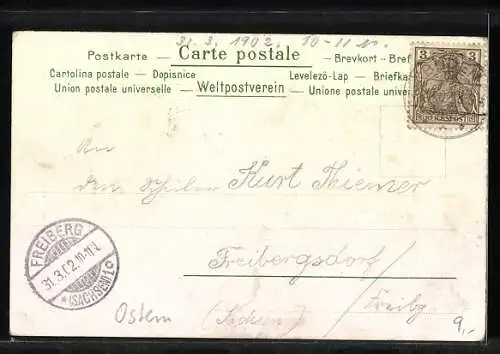 31. 3. 1902. 10-11 N.
Postkarte — Carte postale — Brevkort - Bref
Cartolina postale — Dopisnice Levelező-Lap — Briefka
Union postale universelle — Weltpostverein — Unione postale univer
3 3
An
den Schüler Kurt Thiemer
Freibergsdorf
Freibg.
(Sachsen)
Ostern
FREIBERG
31.3.02.10-11V.
*(SACHSEN)1c
9,-